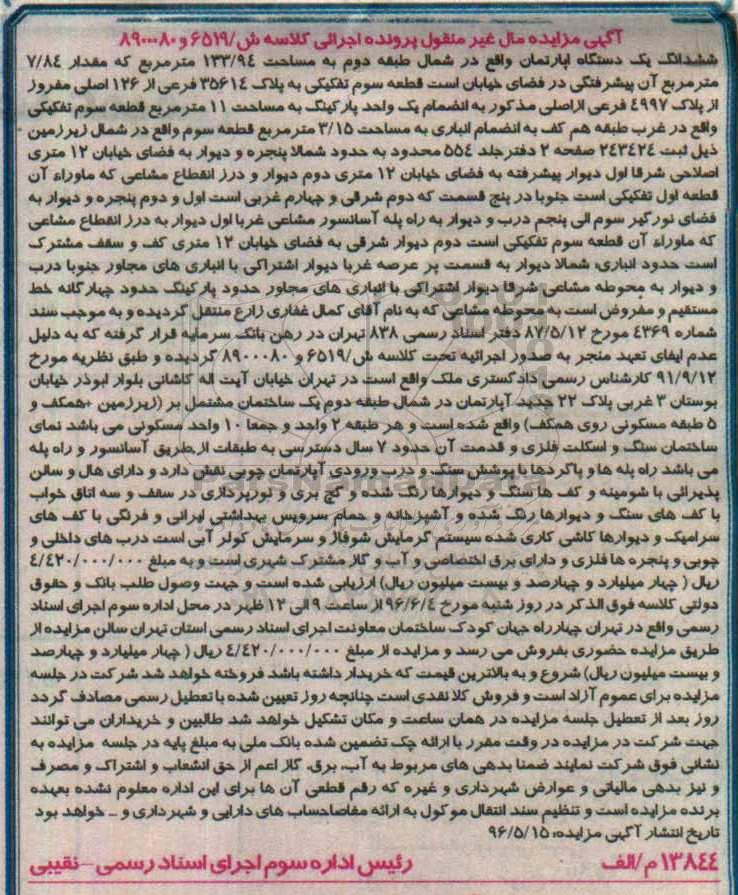 آگهی مزایده مال غیر منقول پرونده اجرائی کلاسه ش/۶۵۱۹ و ۸۹۰۰۰۸۰
ششدانگ یک دستگاه اپارتمان واقع در شمال طبقه دوم به مساحت ۱۳۳/۹۴ مترمربع که مقدار ۷/۸۴
مترمربع آن پیشرفتگی در فضای خیابان است قطعه سوم تفکیکی به پلاک ۳۵۶۱۴ فرعی از ۱۲۶ اصلی مفروز
از پلاک ۴۹۹۷ فرعی ازاصلی مذکور به انضمام یک واحد پارکینگ به مساحت ۱۱ مترمربع قطعه سوم تفکیکی
واقع در غرب طبقه هم کف به انضمام انباری به مساحت ۳/۱۵ مترمربع قطعه سوم واقع در شمال زیرزمین
ذیل ثبت ۲۴۳۴۲۴ صفحه ۲ دفترجلد ۵۵۴ محدود به حدود شمالا پنجره و دیوار به فضای خیابان ۱۲ متری
اصلاحی شرقا اول دیوار پیشرفته به فضای خیابان ۱۲ متری دوم دیوار و درز انقطاع مشاعی که ماوراء آن
قطعه اول تفکیکی است جنوبا در پنج قسمت که دوم شرقی و چهارم غربی است اول و دوم پنجره و دیوار به
فضای نورگیر سوم الی پنجم درب و دیوار به راه پله آسانسور مشاعی غربا اول دیوار به درز انقطاع مشاعی
که ماوراء آن قطعه سوم تفکیکی است دوم دیوار شرقی به فضای خیابان ۱۲ متری کف و سقف مشترک
است حدود انباری: شمالا دیوار به قسمت پر عرصه غربا دیوار اشتراکی با انباری های مجاور جنوبا درب
و دیوار به محوطه مشاعی شرقا دیوار اشتراکی با انباری های مجاور حدود پارکینگ حدود چهارگانه خط
مستقیم و مفروض است به محوطه مشاعی که به نام آقای کمال غفاری زارع منتقل گردیده و به موجب سند
شماره ۴۳۶۹ مورخ ۸۷/۵/۱۲ دفتر اسناد رسمی ۸۳۸ تهران در رهن بانک سرمایه قرار گرفته که به دلیل
عدم ایفای تعهد منجر به صدور اجرائیه تحت کلاسه ش/۶۵۱۹ و ۸۹۰۰۰۸۰ گردیده و طبق نظریه مورخ
۹۱/۹/۱۲ کارشناس رسمی دادگستری ملک واقع است در تهران خیابان آیت اله کاشانی بلوار ابوذر خیابان
بوستان ۳ غربی پلاک ۲۲ جدید آپارتمان در شمال طبقه دوم یک ساختمان مشتمل بر (زیرزمین +همکف و
۵ طبقه مسکونی روی همکف) واقع شده است و هر طبقه ۲ واحد و جمعا ۱۰ واحد مسکونی می باشد نمای
ساختمان سنگ و اسکلت فلزی و قدمت آن حدود ۷ سال دسترسی به طبقات از طریق آسانسور و راه پله
می باشد راه پله ها و پاگردها با پوشش سنگ و درب ورودی آپارتمان چوبی نقش دارد و دارای هال و سالن
پذیرائی با شومینه و کف ها سنگ و دیوارها رنگ شده و گچ بری و نورپردازی در سقف و سه اتاق خواب
با کف های سنگ و دیوارها رنگ شده و آشپزخانه و حمام سرویس بهداشتی ایرانی و فرنگی با کف های
سرامیک و دیوارها کاشی کاری شده سیستم گرمایش شوفاژ و سرمایش کولر آبی است درب های داخلی و
چوبی و پنجره ها فلزی و دارای برق اختصاصی و آب و گاز مشترک شهری است و به مبلغ ۴/۴۲۰/۰۰۰/۰۰۰
ریال ( چهار میلیارد و چهارصد و بیست میلیون ریال) ارزیابی شده است و جهت وصول طلب بانک و حقوق
دولتی کلاسه فوق الذکر در روز شنبه مورخ ۹۶/۶/۴ از ساعت ۹ الی ۱۲ ظهر در محل اداره سوم اجرای اسناد
رسمی واقع در تهران چهارراه جهان کودک ساختمان معاونت اجرای اسناد رسمی استان تهران سالن مزایده از
طریق مزایده حضوری بفروش می رسد و مزایده از مبلغ ۴/۴۲۰/۰۰۰/۰۰۰ ریال ( چهار میلیارد و چهارصد
و بیست میلیون ریال) شروع و به بالاترین قیمت که خریدار داشته باشد فروخته خواهد شد شرکت در جلسه
مزایده برای عموم آزاد است و فروش کلا نقدی است چنانچه روز تعیین شده با تعطیل رسمی مصادف گردد
روز بعد از تعطیل جلسه مزایده در همان ساعت و مکان تشکیل خواهد شد طالبین و خریداران می توانند
جهت شرکت در مزایده در وقت مقرر با ارائه چک تضمین شده بانک ملی به مبلغ پایه در جلسه مزایده به
نشانی فوق شرکت نمایند ضمنا بدهی های مربوط به آب، برق، گاز اعم از حق انشعاب و اشتراک و مصرف
و نیز بدهی مالیاتی و عوارض شهرداری و غیره که رقم قطعی آن ها برای این اداره معلوم نشده بعهده
برنده مزایده است و تنظیم سند انتقال موکول به ارائه مفاصاحساب های دارایی و شهرداری و ... خواهد بود
تاریخ انتشار آگهی مزایده: ۹۶/۵/۱۵
۱۳۸۴۴م/الف رئیس اداره سوم اجرای اسناد رسمی-نقیبی